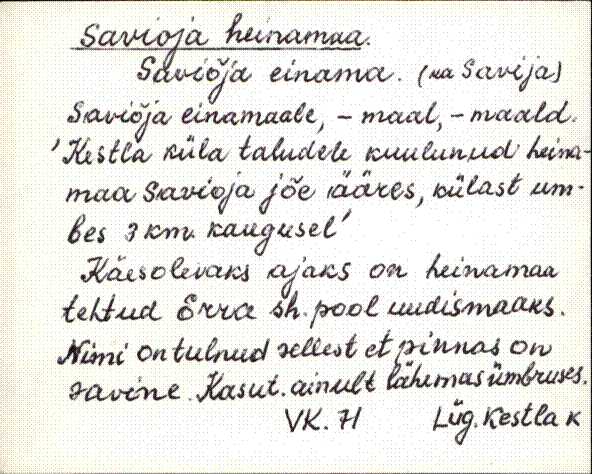 Savioja heinamaa.
Saviõja einama. (ka Savija)
Saviõja einamaale, - maal, - maald.
'Kestla küla taludele kuulunud heina-
maa Savioja jõe ääres, külast um-
bes 3 km. kaugusel'
Käesolevaks ajaks on heinamaa
tehtud Erra sh. pool uudismaaks.
Nimi on tulnud sellest et pinnas on
savine. Kasut. ainult lähemas ümbruses.
VK. 71 Lüg. Kestla k